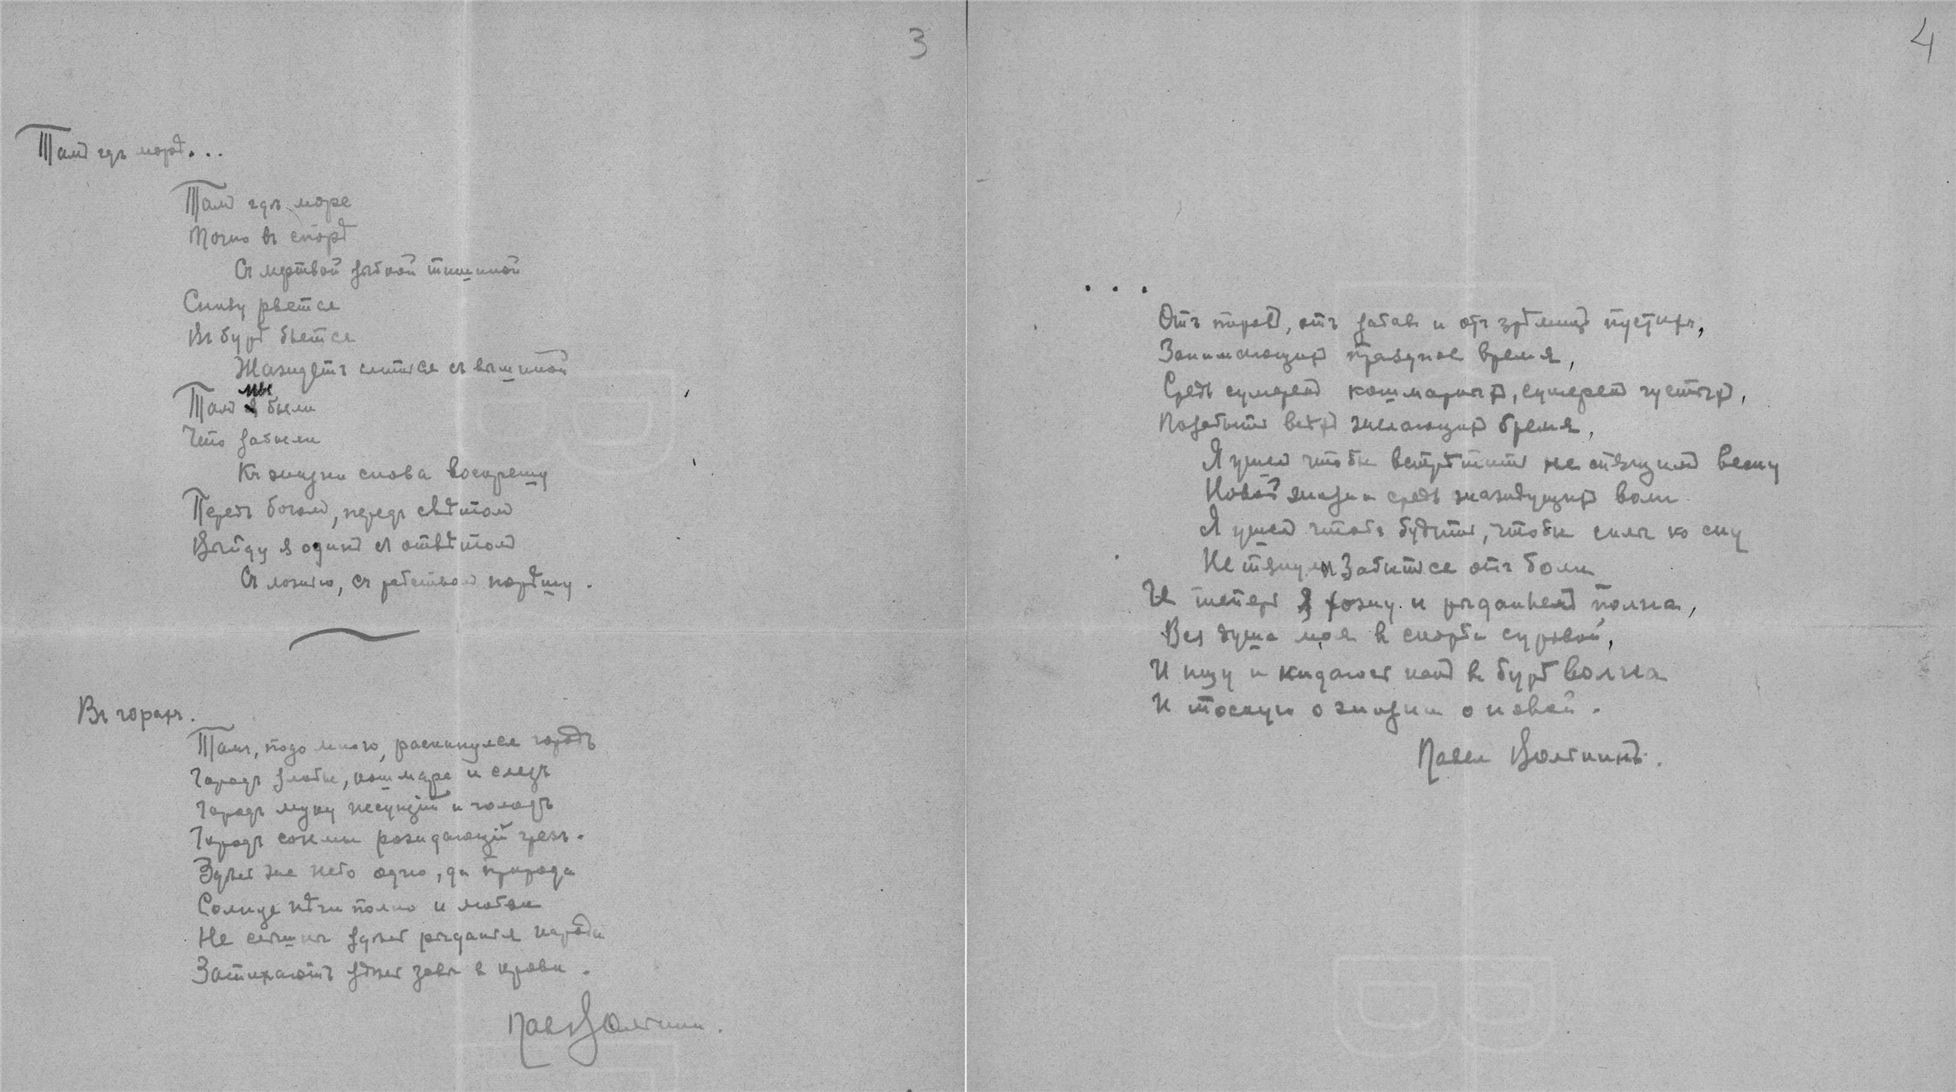 3
Тамъ гдѣ море...
Тамъ гдѣ море
Точно въ спорѣ
Съ мертвой зыбкой тишиной
Снизу рвется
Въ бурѣ бьется
Жаждетъ слиться съ вышиной
Тамъ мы были
Что забыли
Къ жизни снова воскрешу
Передъ богомъ, передъ свѣтомъ
Выйду я одинъ съ отвѣтомъ
Съ ложью, съ рабствомъ порѣшу.
Въ горахъ.
Тамъ, подо мною, раскинулся городъ
Городъ злобы, кошмара и слезъ
Городъ муку несущій и голодъ
Городъ сонмы рождающій грезъ.
Здѣсь же небо одно, да природа
Солнце нѣги полно и любви
Не слышны здѣсь рыданья народа
Затихаютъ здѣсь зовы в крови.
Павел Волгинъ.
4
...
Отъ пировъ, отъ забавъ и отъ зрѣлищъ пустыхъ,
Занимающихъ праздное время,
Средь сумерекъ кошмарныхъ, сумерекъ густыхъ,
Позабыть всѣхъ желающихъ бремя,
Я ушелъ чтобы встрѣтить не спящимъ весну
Новой жизни средь жаждущихъ воли
Я ушелъ чтобъ будить, чтобы силы ко сну
Не тянули Забыться отъ боли
И теперь я хожу и рыданьемъ полна,
Вся душа моя в скорби суровой,
И ищу и кидаюсь какъ в бурѣ волна
И тоскую о жизни о новой.
Павел Волгинъ.